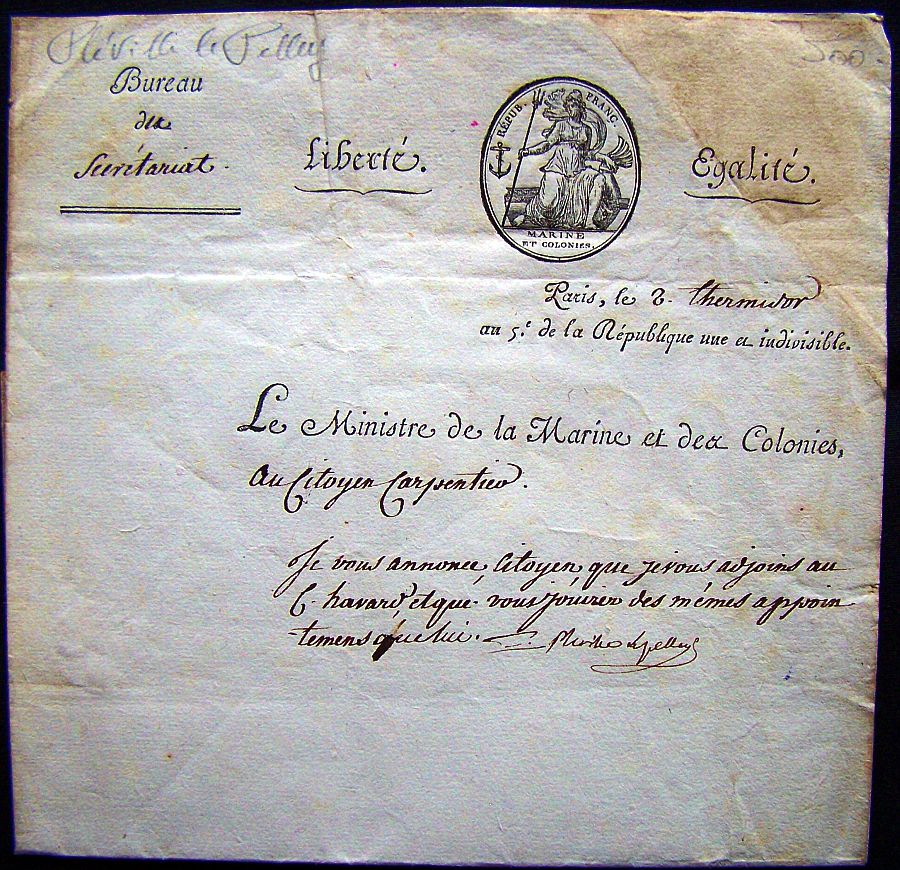 Pléville le Pelley
500-
Bureau
des
Secrétariat.
Liberté.
RÉPUB. FRANC.
MARINE
ET COLONIES.
Egalité.
Paris, le 3. thermidor
au 5.e de la République une et indivisible.
Le Ministre de la Marine et des Colonies,
Au Citoyen Carpentier.
Je vous annonce, Citoyen que je vous adjoins au
C. havard, et que vous jouirez des mêmes appoin
-temens que lui.
Pleville Lepelley